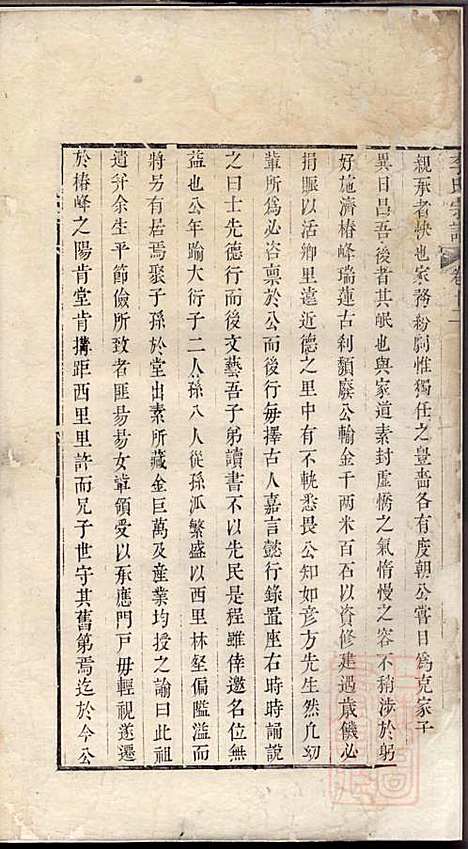 李氏宗譜 卷十二
親承者缺也家務粉劇惟獨任之豐嗇各有度朝公嘗曰爲克家子
異日昌吾後者其岷也與家道素封虛憍之氣惰慢之容不稍涉於躬
好施濟椿峰瑞蓮古刹頽廢公輸金千兩米百石以資修建遇歲饑必
捐賑以活鄉里遠近德之里中有不軌悉畏公知如彥方先生然凡幼
輩所爲必咨禀於公而後行每擇古人嘉言懿行錄置座右時時誦說
之曰士先德行而後文藝吾子弟讀書不以先民是程雖倖邀名位無
益也公年踰大衍子二人孫八人從孫派繁盛以西里林壑偏隘溢而
將另有居焉聚子孫於堂出素所藏金巨萬及產業均授之諭曰此祖
遺幷余生平節儉所致者匪昜昜女韋領受以承應門戸毋輕視遂遷
於椿峰之陽肯堂肯搆距西里里許而兄子世守其舊第焉迄於今公